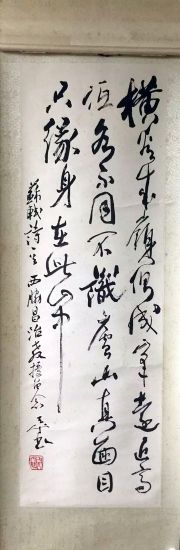 橫看成嶺側成峯遠近高
低各不同不識廬山真面目
只緣身在此山中
蘇軾詩 西脇昌治教授留念 書